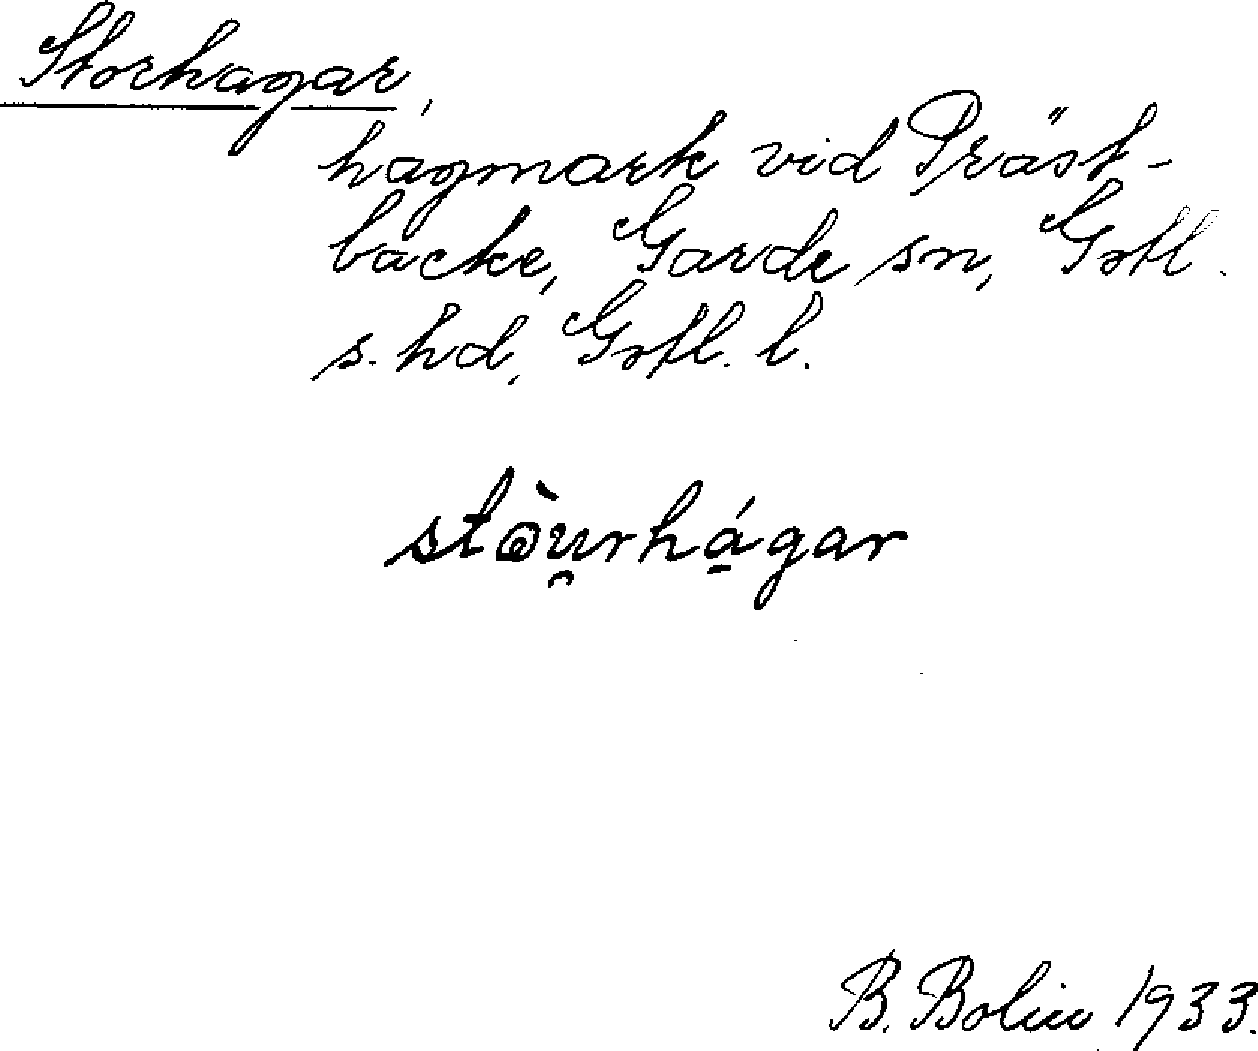 Storhagar,
hagmark vid Präst-
backe, Garde sn, Gotl.
s. hd, Gotl. l.
stə̀u̯rhá̱gar
B. Bolin 1933.